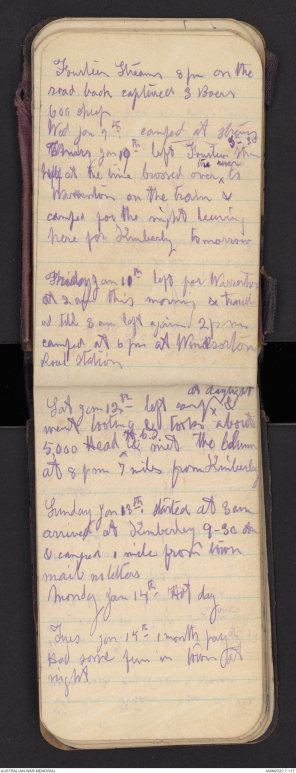 Fourteen Streams 8 pm on the
road back captured 3 Boers
600 sheep
Wed Jan 9th camped at streams
Thurs Jan 10th left Fourteen
at the time crossed over the river to
Warrenton on the train &
camped for the night leaving
here for Kimberly tomorrow
Friday Jan 10th left for Warrenton
at 2 am this morning & travel
ed till 8 am left again 2 pm
camped at 6 pm at Windsorton
Road Station
Sat Jan 12th left camp at daylight &
went looting & took about
5,000 Head & met the column
at 8 pm 7 miles from Kimberley
Sunday Jan 13th started at 8 am
arrived at Kimberley 9-30 am
& camped 1 mile from town
mail no letters
Monday Jan 14th Hot day
Tues Jan 15th 1 month pay
Had some fun in town at
night
AUSTRALIAN WAR MEMORIAL